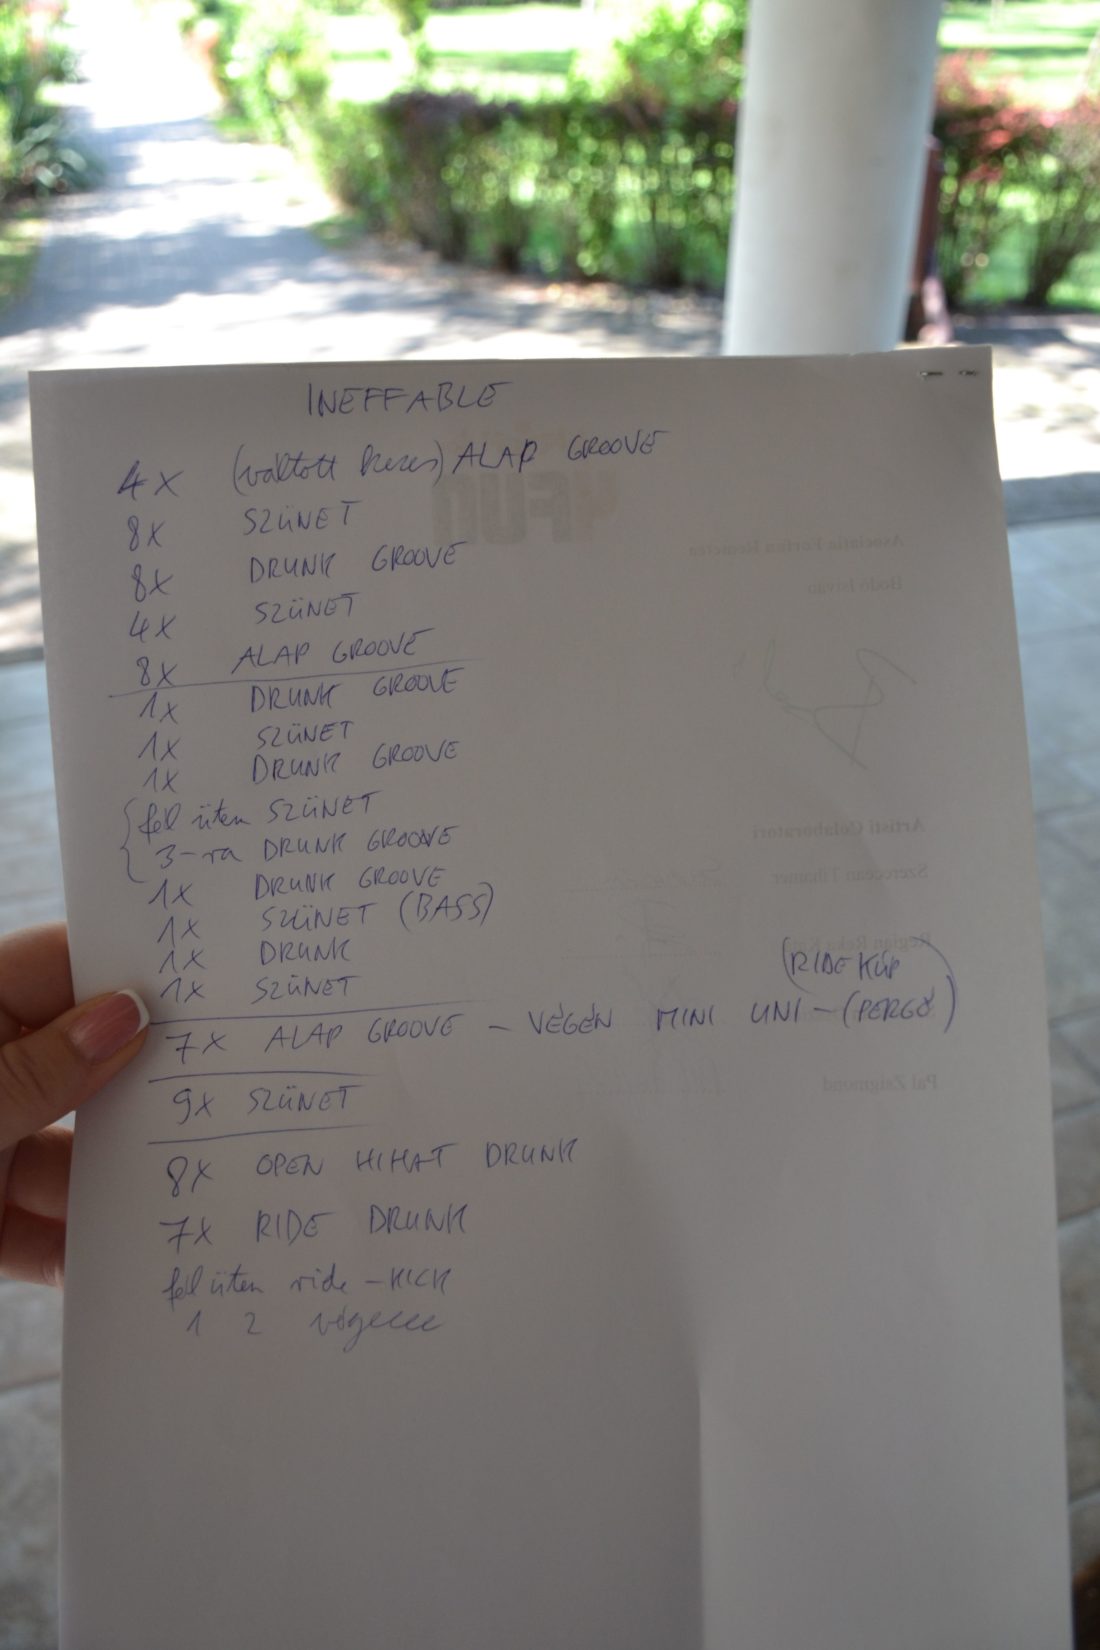 INEFFABLE
4X (váltott kezes) ALAP GROOVE
8X SZÜNET
8X DRUNK GROOVE
4X SZÜNET
8X ALAP GROOVE
1X DRUNK GROOVE
1X SZÜNET
1X DRUNK GROOVE
fél ütem SZÜNET
3-ra DRUNK GROOVE
1X DRUNK GROOVE
1X SZÜNET (BASS)
1X DRUNK
1X SZÜNET
(RIDE KÚP
7X ALAP GROOVE – VÉGÉN MINI UNI – (PERGŐ)
9X SZÜNET
8X OPEN HIHAT DRUNK
7X RIDE DRUNK
fél ütem ride – KICK
1 2 végeeee
4FUN
Asociatia Forfun Remetea
Bodó István
Artisti Colaboratori
Pal Zsigmond